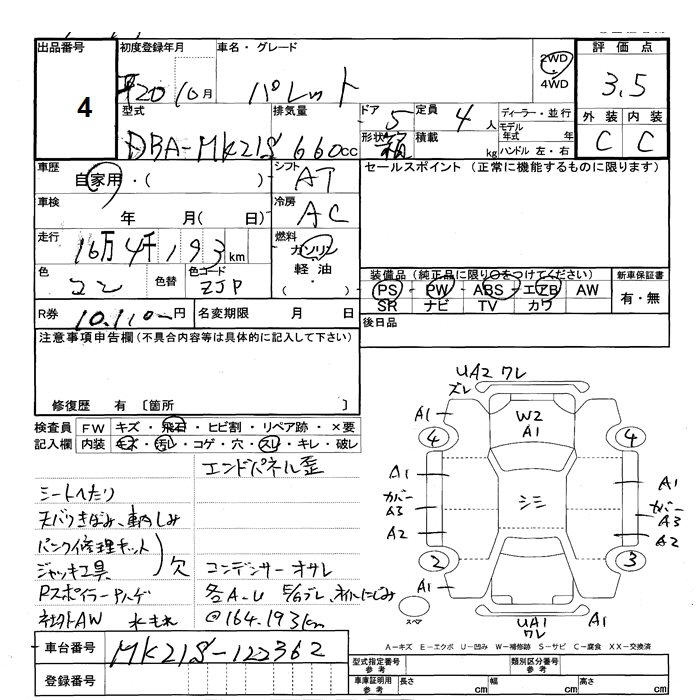 出品番号 4
初度登録年月 平20 10月
車名・グレード パレット
2WD 4WD
評価点 3.5
型式 DBA-MK21S
排気量 660cc
ドア 5 定員 4人
形状 箱 積載 kg
ディーラー・並行
モデル年式 年
ハンドル 左・右
外装 内装
C C
車歴 自家用・( )
シフト AT
セールスポイント (正常に機能するものに限ります)
車検 年 月( 日)
冷房 AC
走行 16万4千193km
燃料 ガソリン 軽油・( )
色 コン 色替 色コード ZJP
装備品 (純正品に限り○をつけてください)
新車保証書
PS PW ABS エアB AW
有・無
SR ナビ TV カワ
R券 10.110-円 名変期限 月 日
後日品
注意事項申告欄(不具合内容等は具体的に記入して下さい)
修復歴 有 〔箇所 〕
検査員 FW キズ・飛石・ヒビ割・リペア跡・×要
記入欄 内装 キズ・汚レ・コゲ・穴・スレ・キレ・破レ
エンドパネル歪
シートへたり
天バリきばみ、車内しみ
パンク修理キット
ジャッキ工具 欠 コンデンサー オサレ
Rスポイラー
各A-U
社外AW 水もれ @164.193km
UA2 ワレ
ズレ
A1 W2 A1
4 4
A1 シミ A1
カバー A3 カバー A3
A2 A2
2 3
A1 A1
スペア UA1 ワレ
A-キズ E-エクボ U-凹み W-補修跡 S-サビ C-腐食 XX-交換済
車台番号 MK21S-122362
登録番号
型式指定番号 参考 類別区分番号 参考
車庫証明用 参考 長さ cm 幅 cm 高さ cm